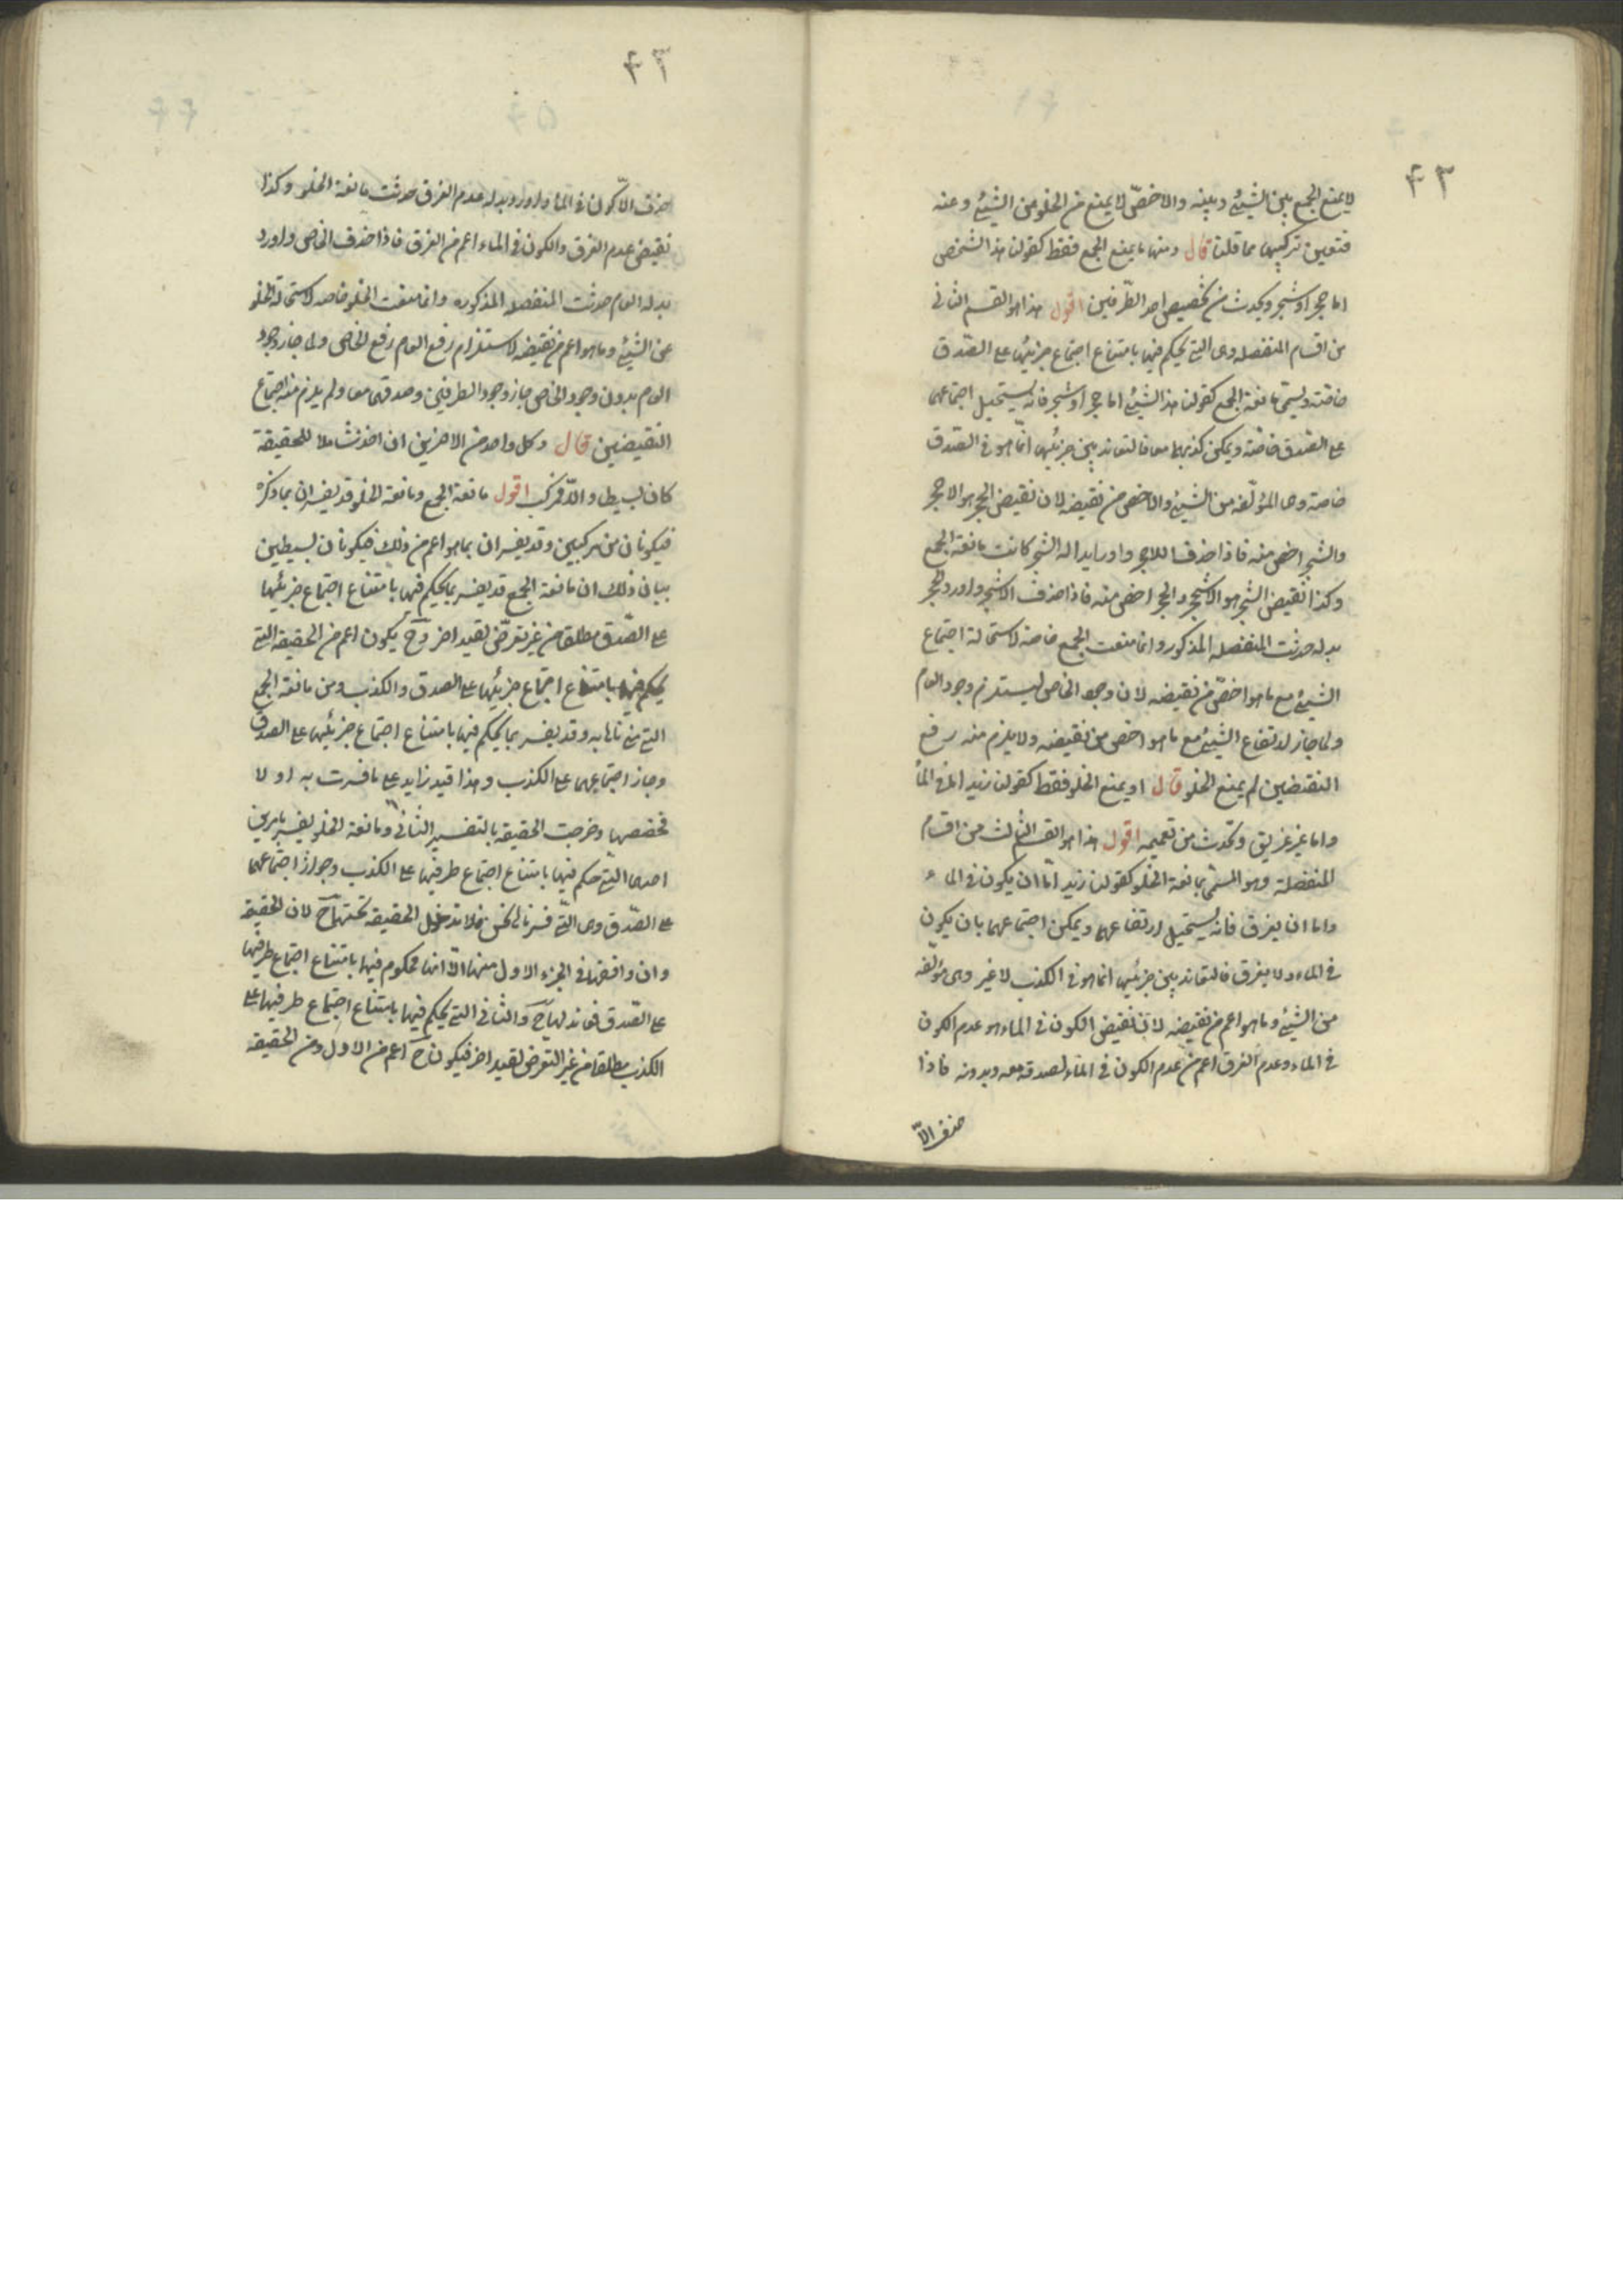 ۴۳
لا يمنع الجمع بين الشيئ وبينه والاخصّ لا يمنع من الخلو من الشيئ وعنه
فتعين تركيبها مما قلنا قال ومنها ما يمنع الجمع فقط كقولنا هذا الشخص
اما حجر او شجر ويحدث من تخصيص احد الطّرفين اقول هذا هو القسم الثانى
من اقسام المنفصله وهى التى يحكم فيها بامتناع اجتماع جزئيها على الصّدق
خاصّة ويسمّى مانعة الجمع كقولنا هذا الشيئ اما حجر او شجر فانه يستحيل اجتماعهما
على الصّدق خاصّة ويمكن كذبهما معا فالتعاند بين جزئيها انّما هو فى الصّدق
خاصة وهى المؤلّفه من الشيئ والاخص من نقيضه لان نقيض الحجر هو الاحجر
والشجر اخص منه فاذا حذفنا اللاحجر واورد بداله الشجر كانت مانعة الجمع
وكذا نقيض الشجر هو الاشجر والحجر اخص منه فاذا حذف الاشجر واورد الحجر
بدله حدثت المنفصله المذكوره وانما منعت الجمع خاصة لاستحالة اجتماع
الشيئ مع ما هو اخصّ من نقيضه لان وجود الخاص يستلزم وجود العام
ولما جاز ارتفاع الشيئ مع ما هو اخص من نقيضه ولا يلزم منه رفع
النقيضين لم يمنع الخلو قال او يمنع الخلو فقط كقولنا زيد اما فى الماء
واما غير غريق وتحدث من تعميمه اقول هذا هو القسم الثالث من اقسام
المنفصلة وهو المسمّى بمانعة الخلو كقولنا زيد امّا ان يكون فى الماء
واما ان لا يغرق فانه يستحيل ارتفاعهما ويمكن اجتماعهما بان يكون
فى الماء ولا يغرق فالتعاند بين جزئيها انما هو فى الكذب لا غير وهى مؤلّفه
من الشيئ وما هو اعم من نقيضه لان نقيض الكون فى الماء هو عدم الكون
فى الماء وعدم الغرق اعم من عدم الكون فى الماء لصدقه معه وبدونه فاذا
حذف الاّ
۴۴
حذف الاّكون فى الماء واورد بدله عدم الغرق حدثت مانعة الخلو وكذا
نقيض عدم الغرق والكون فى الماء اعم من الغرق فاذا حذف الخاص واورد
بدله العام حدثت المنفصله المذكوره وانما منعت الخلو خاصه لاستحالة الخلو
عن الشيئ وما هو اعم من نقيضه لاستلزام رفع العام رفع الخاص ولما جاز وجود
العام بدون وجود الخاص جاز وجود الطرفين وصدقهما معا ولم يلزم منه اجتماع
النقيضين قال وكل واحد من الاخرين ان اخذت شاملا للحقيقة
كان بسيطا والاّ فمركب اقول مانعة الجمع ومانعة الخلو قد يفسران بما ذكره
فيكونان من مركبين وقد يفسران بما هو اعم من ذلك فيكونان بسيطين
بيان ذلك ان مانعة الجمع قد يفسر بما يحكم فيها بامتناع اجتماع جزئيها
على الصّدق مطلقا من غير تعرّض لقيد اخر وحّ يكون اعم من الحقيقه التى
يحكم فيها بامتناع اجتماع جزئيها على الصدق والكذب ومن مانعة الجمع
التى بينّاها به وقد يفسر بما يحكم فيها بامتناع اجتماع جزئيها على الصدق
وجاز اجتماعهما على الكذب وهذا قيد زايد على ما فسرت به اولا
تخصصها وخرجت الحقيقه بالتفسير الثانى ومانعة الخلو يفسر بامرين
احدى التى حكم فيها بامتناع اجتماع طرفيها على الكذب وجواز اجتماعهما
على الصّدق وهى التّى فسرناها نحن فلا تدخل الحقيقه تحتها حّ لان الحقيقة
وان وافقتها فى الجزء الاول منها الاّ انها محكوم فيها بامتناع اجتماع طرفيها
على الصّدق فعاند لها حّ والثانى التى يحكم فيها بامتناع اجتماع طرفيها على
الكذب مطلقا من غير التعرض لقيد اخر فيكون حّ اعم من الاول ومن الحقيقه